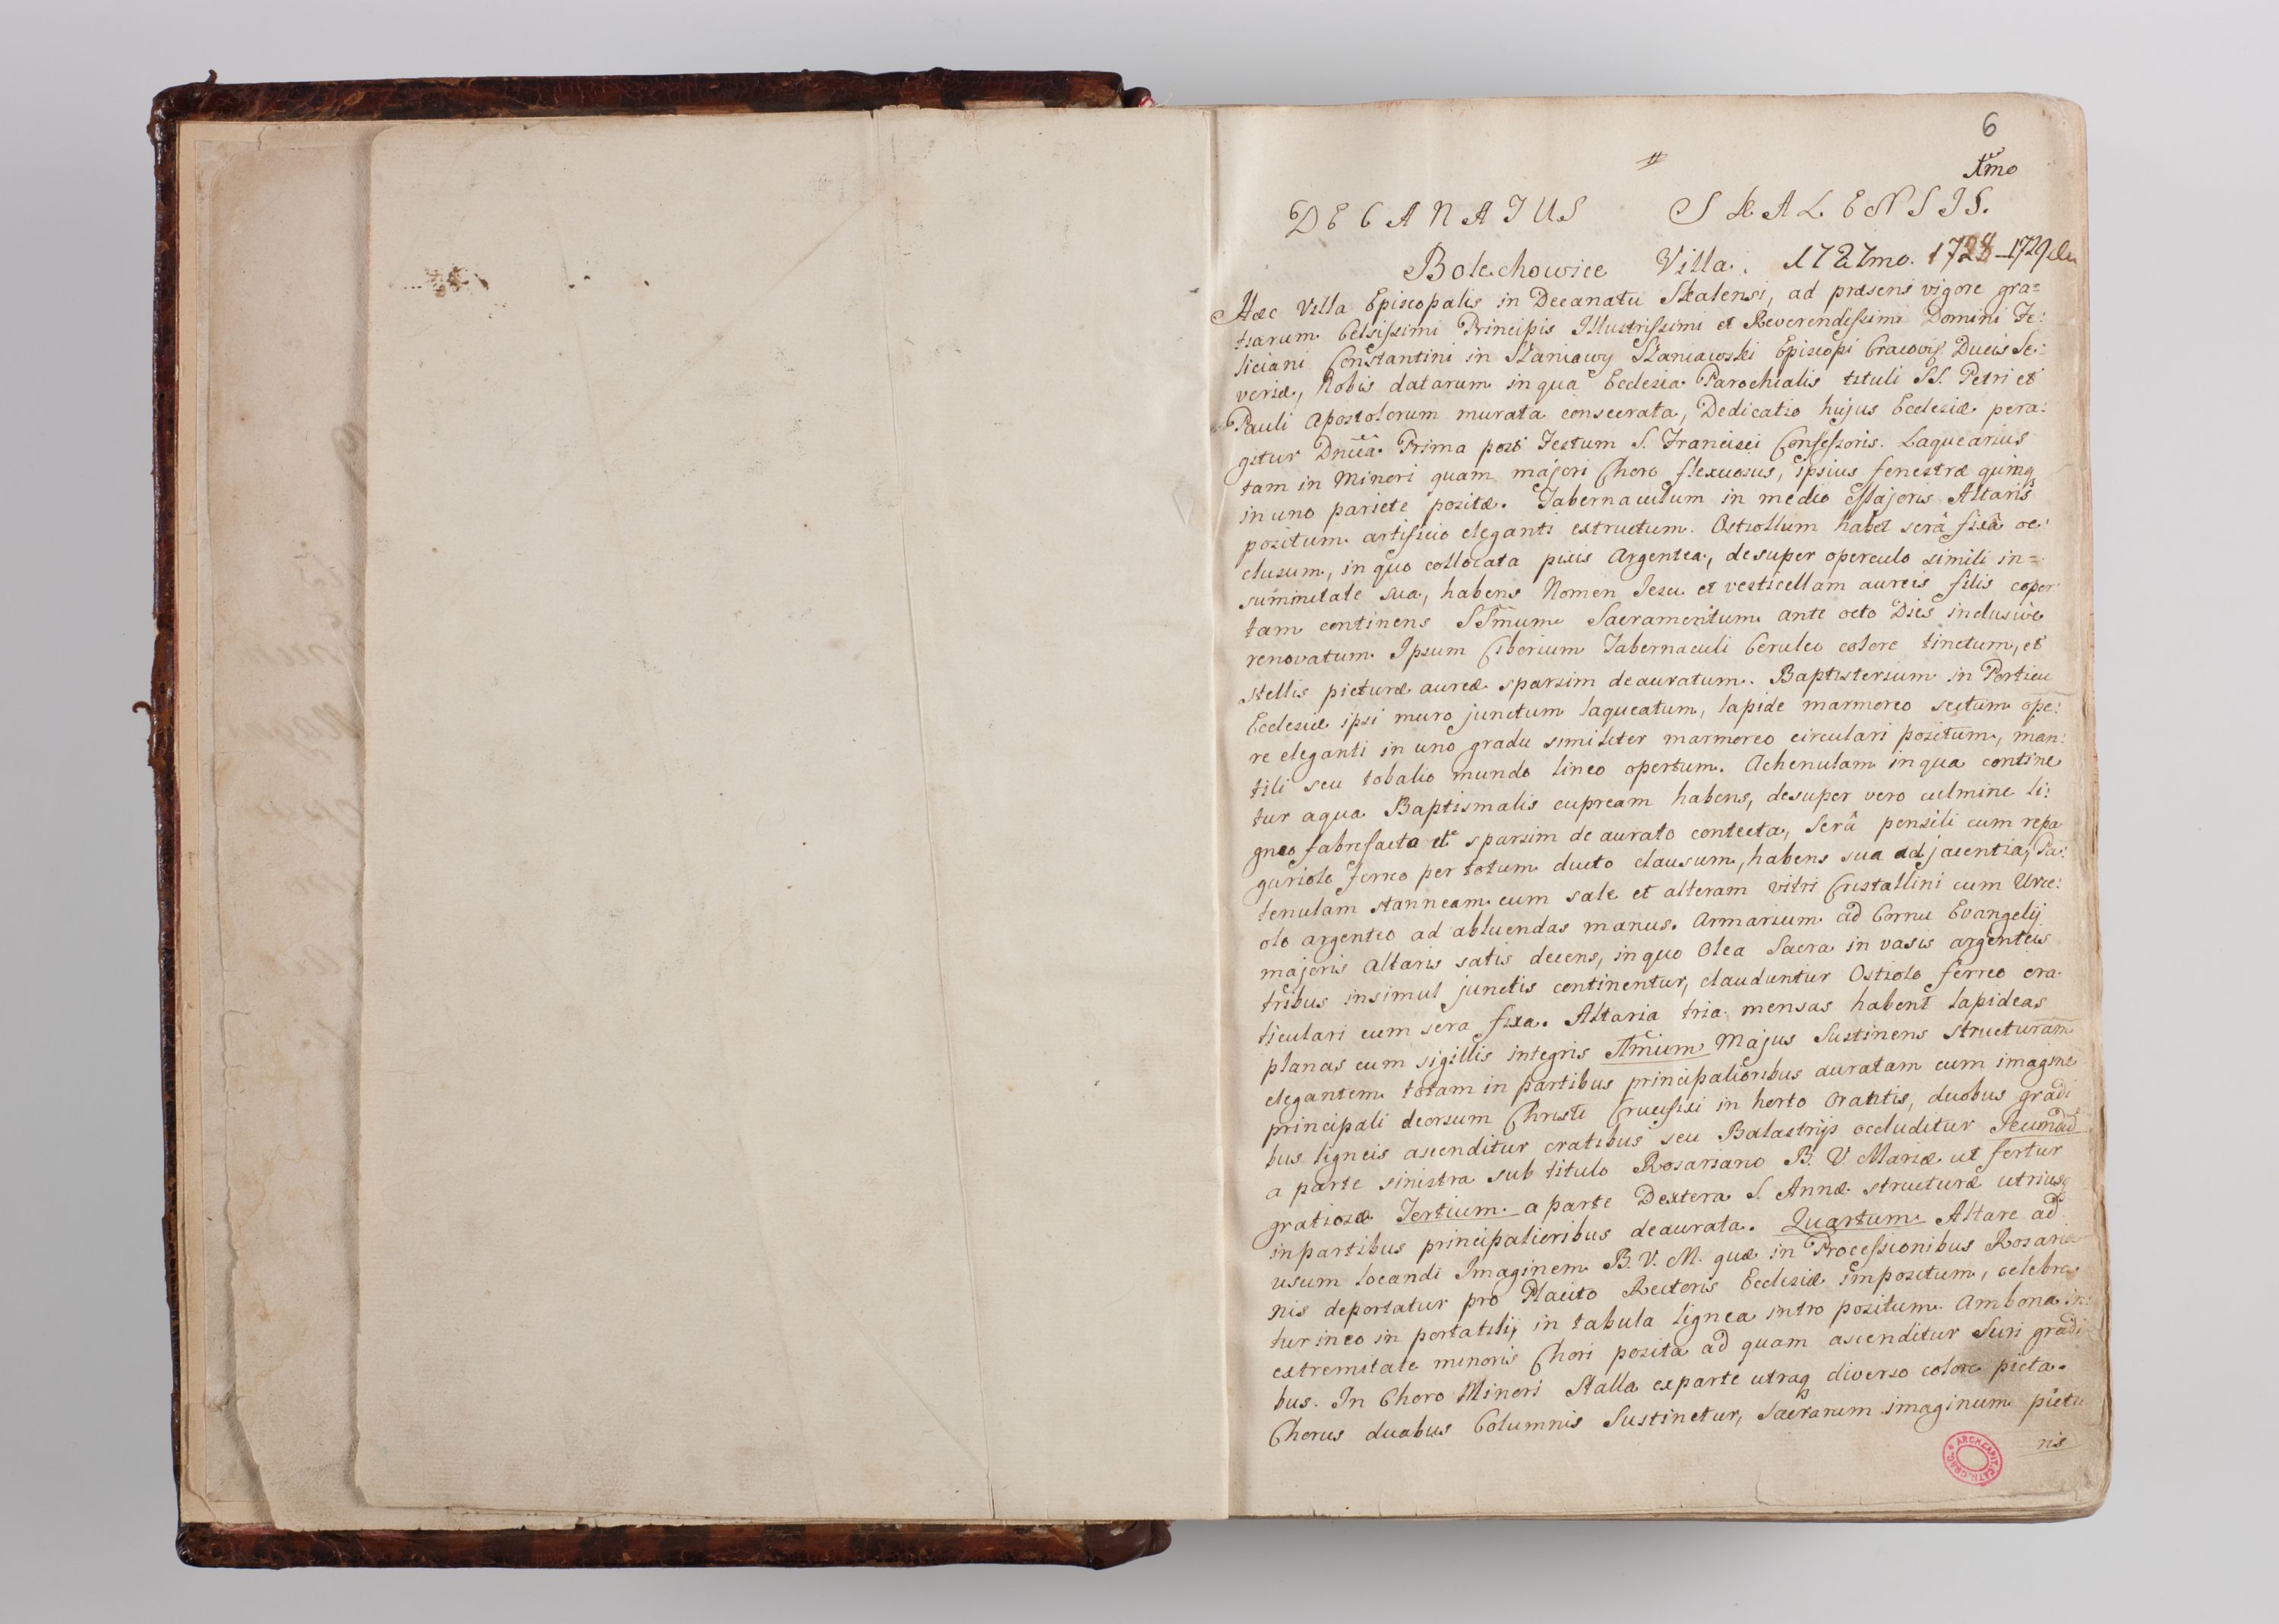 6
1mo
DECANATUS SKALENSIS.
Bolechowice Villa. 1727mo. 1728–1729
Hæc Villa Episcopalis in Decanatu Skalensi, ad præsens vigore gra=
tiarum Celsissimi Principis Illustrissimi et Reverendissimi Domini Fe:
liciani Constantini in Szaniawy Szaniawski Episcopi Cracovis Ducis Se:
veriæ, Nobis datarum in qua Ecclesia Parochialis tituli SS. Petri et
Pauli Apostolorum murata consecrata, Dedicatio hujus Ecclesiæ pera:
gitur Dnica Prima post Festum S. Francisci Confessoris. Laquearius
tam in Minori quam majori Choro flexuosus, ipsius fenestræ quinq
in uno pariete positæ. Tabernaculum in medio Majoris Altaris
positum artificio eleganti extructum. Ostiollum habet serâ fixâ oc:
clusum, in quo collocata pixis Argentea, desuper operculo simili in=
summitate sua, habens Nomen Jesu et vesticellam aureis filis coper
tam continens SSmum Sacramentum ante octo Dies inclusive
renovatum. Ipsum Ciborium Tabernaculi Ceruleo colore tinctum, et
stellis picturæ aureæ sparsim deauratum. Baptisterium in Porticu
Ecclesiæ ipsi muro junctum laqueatum, lapide marmoreo sectum ope:
re eleganti in uno gradu similiter marmoreo circulari positum, man:
tili seu tobalio mundo lineo opertum. Achenulam in qua contine
tur aqua Baptismalis cupream habens, desuper vero culmine li:
gneo fabrefacta et sparsim de aurato contecta, Serâ pensili cum repa
guriolo ferreo per totum ducto clausum, habens sua adjacentia, Pa:
tenulam stanneam cum sale et alteram vitri Cristallini cum Urce:
olo argenteo ad abluendas manus. Armarium ad Cornu Evangelij
majoris Altaris satis decens, in quo Olea Sacra in vasis argenteis
tribus insimul junctis continentur, clauduntur Ostiolo ferreo cra
ticulari cum sera fixa. Altaria tria mensas habent lapideas
planas cum sigillis integris Imum Majus Sustinens structuram
elegantem totam in partibus principalioribus auratam cum imagine
principali deorsum Christi Crucifixi in horto Orantis, duobus gradi
bus ligneis ascenditur cratibus seu Balastrijs occluditur Secundũ
a parte sinistra sub titulo Rosariano B. V. Mariæ ut fertur
gratiosæ Tertium a parte Dextera S. Annæ structuræ utriusq
in partibus principalioribus deaurata. Quartum Altare ad
usum locandi Imaginem B. V. M. quæ in Processionibus Rosaria
nis deportatur pro Placito Rectoris Ecclesiæ impositum, celebra
tur in eo in portatili, in tabula lignea intro positum. Ambona in:
extremitate minoris Chori posita ad quam ascenditur Suri gradi
bus. In Choro Minori Stalla ex parte utraq diverso colore picta.
Chorus duabus Columnis Sustinetur, Sacrarum imaginum pictu
ris
ARCH. CAPIT. CATH. CRAC.